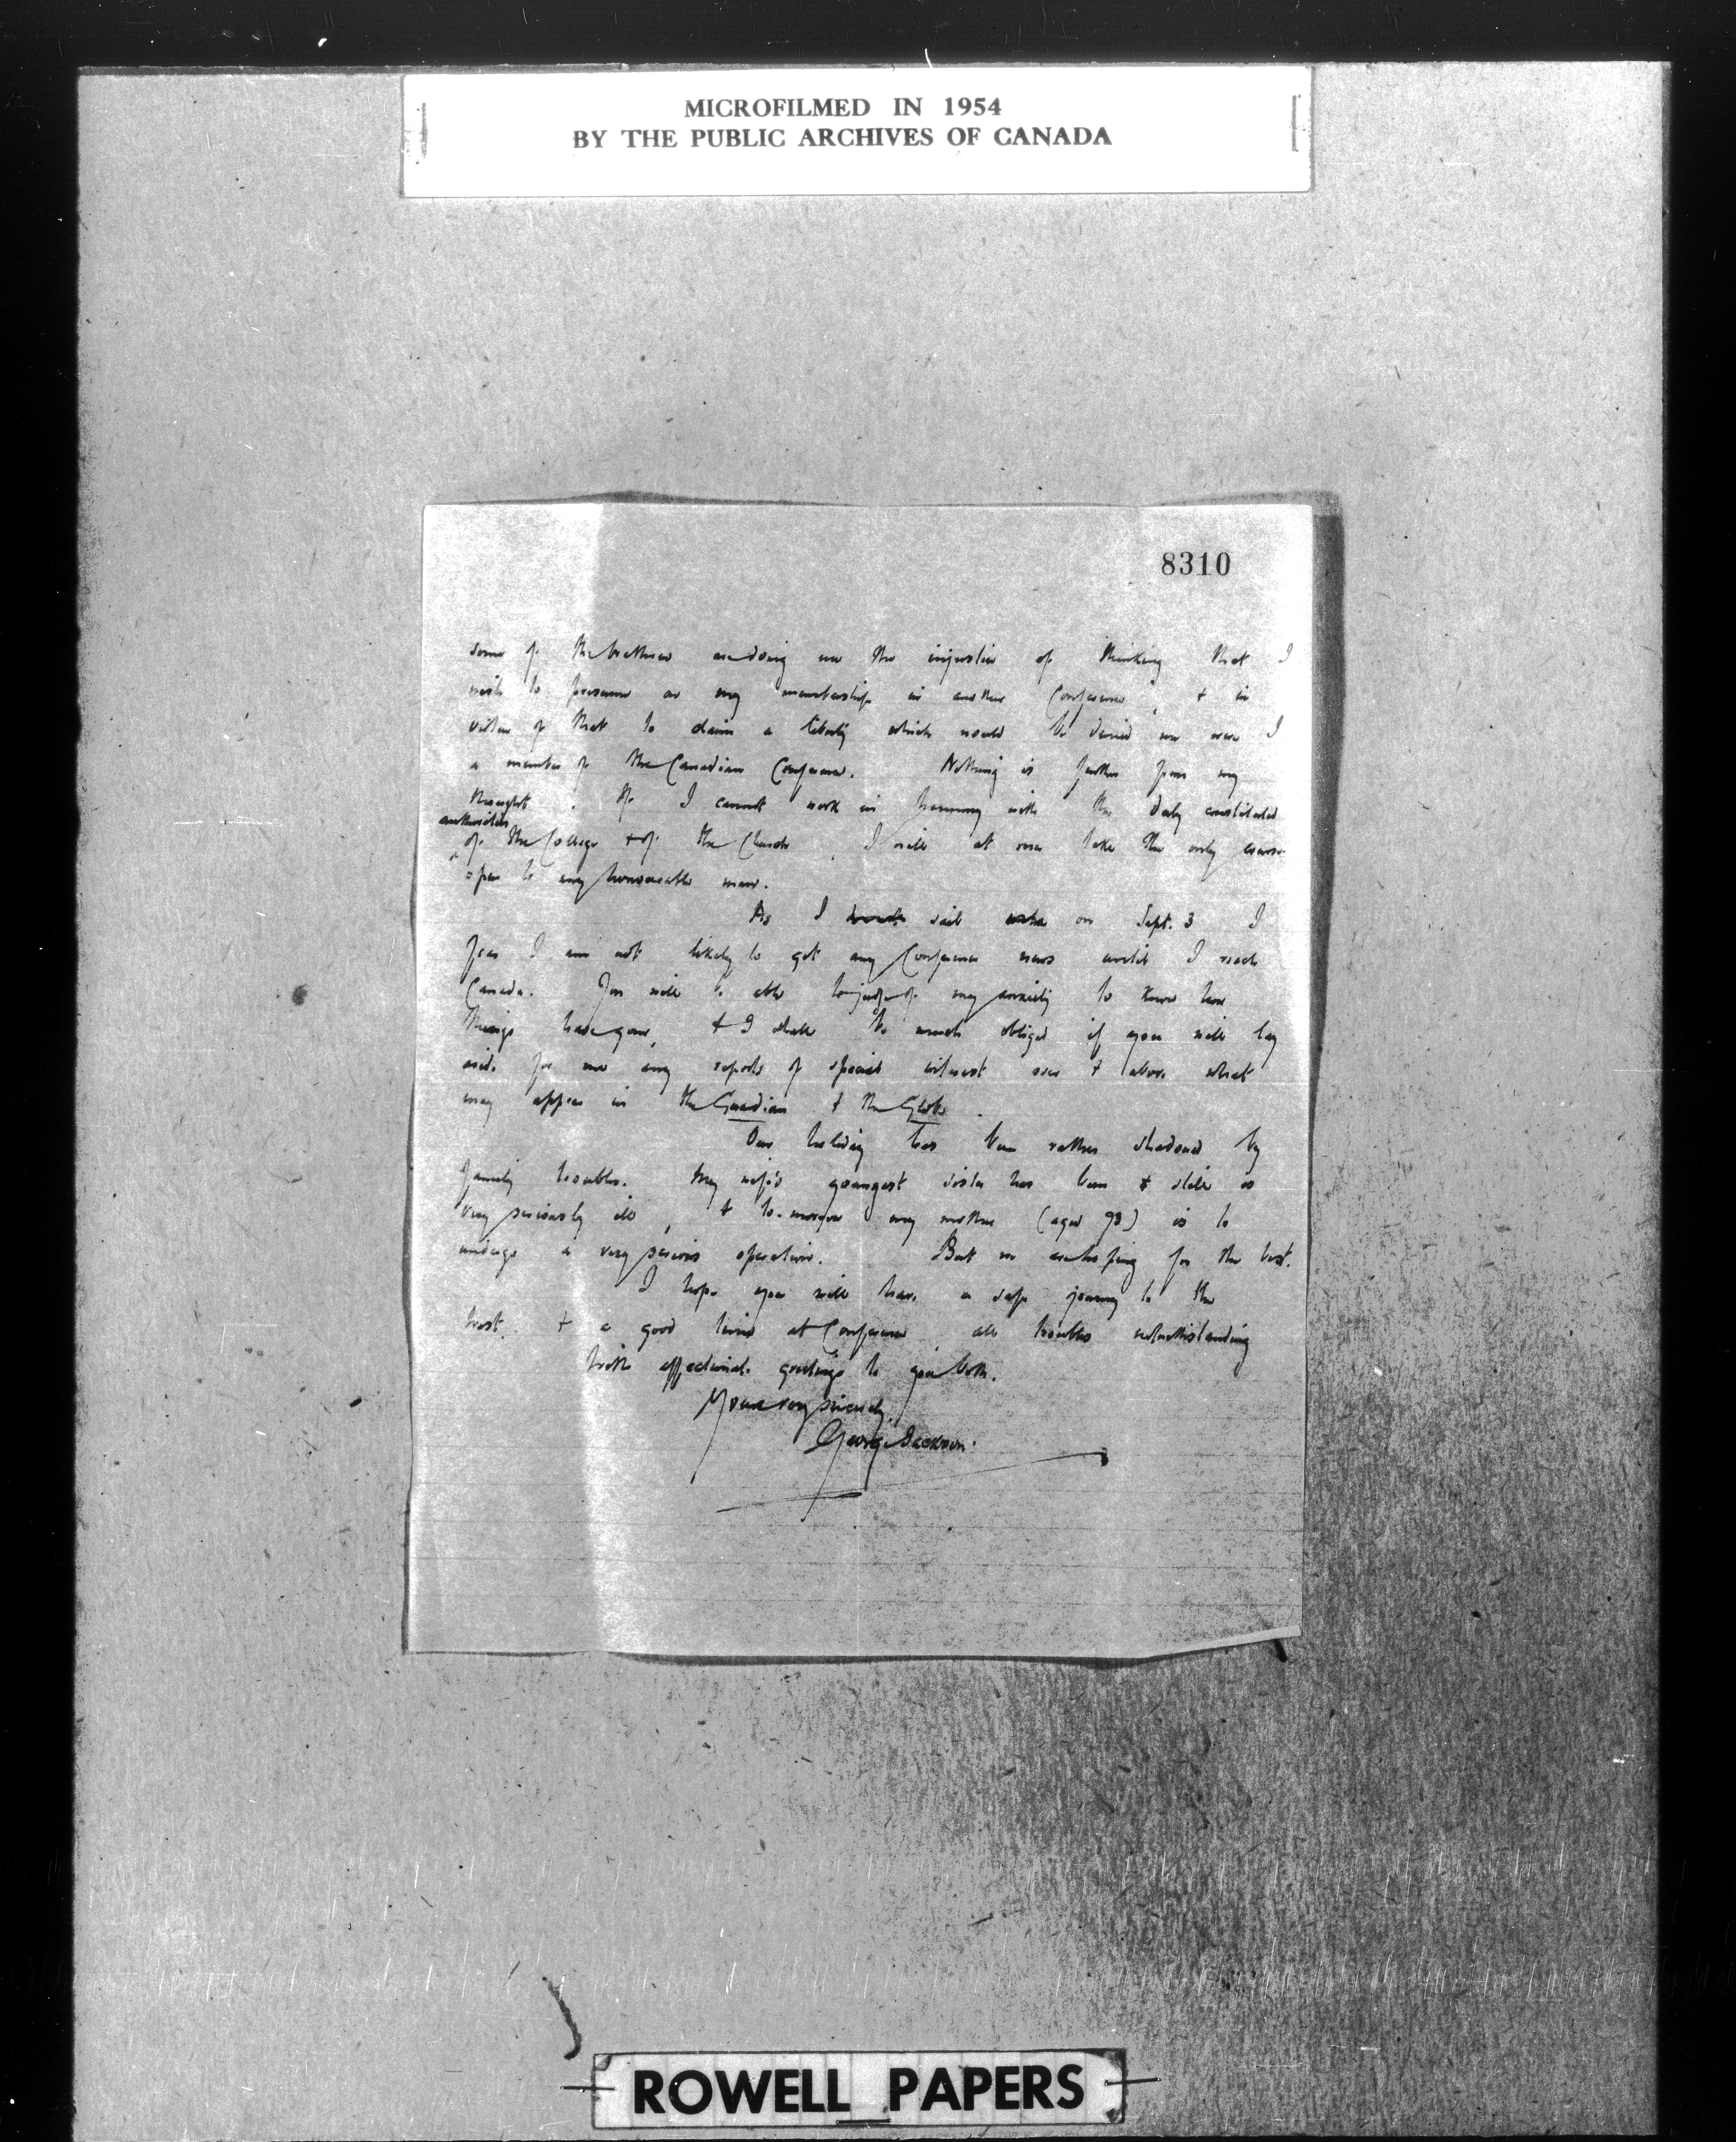 MICROFILMED IN 1954
BY THE PUBLIC ARCHIVES OF CANADA
8310
some of the brethren are doing me the injustice of thinking that I
wish to presume on my membership in another Conference, & in
virtue of that to claim a liberty which would be denied me were I
a member of the Canadian Conference. Nothing is further from my
thoughts. If I cannot work in harmony with the duly constituted
authorities
of the College & of the Church, I will at once take the only course
open to any honourable man.
As I sail on Sept. 3 I
fear I am not likely to get any Conference news until I reach
Canada. You will be able to judge of my anxiety to know how
things have gone, & I shall be much obliged if you will lay
aside for me any reports of special interest over & above what
may appear in the Guardian & the Globe.
Our holiday has been rather shadowed by
family troubles. My wife's youngest sister has been & still is
very seriously ill, & to-morrow my mother (aged 73) is to
undergo a very serious operation. But we are hoping for the best.
I hope you will have a safe journey to the
West, & a good time at Conference all troubles notwithstanding
With affectionate greetings to you both.
Yours very sincerely,
George Jackson.
ROWELL PAPERS